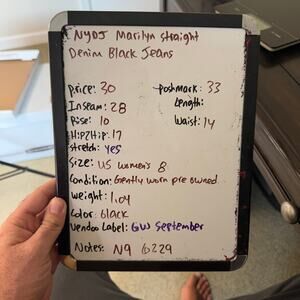 NYDJ Marilyn straight
Denim Black Jeans
price: 30 poshmark: 33
Inseam: 28 Length:
Rise: 10 Waist: 14
Hip2Hip: 17
Stretch: yes
Size: US women's 8
Condition: Gently worn pre owned
weight: 1.04
Color: black
Vendoo Label: GW September
Notes: N9 b229